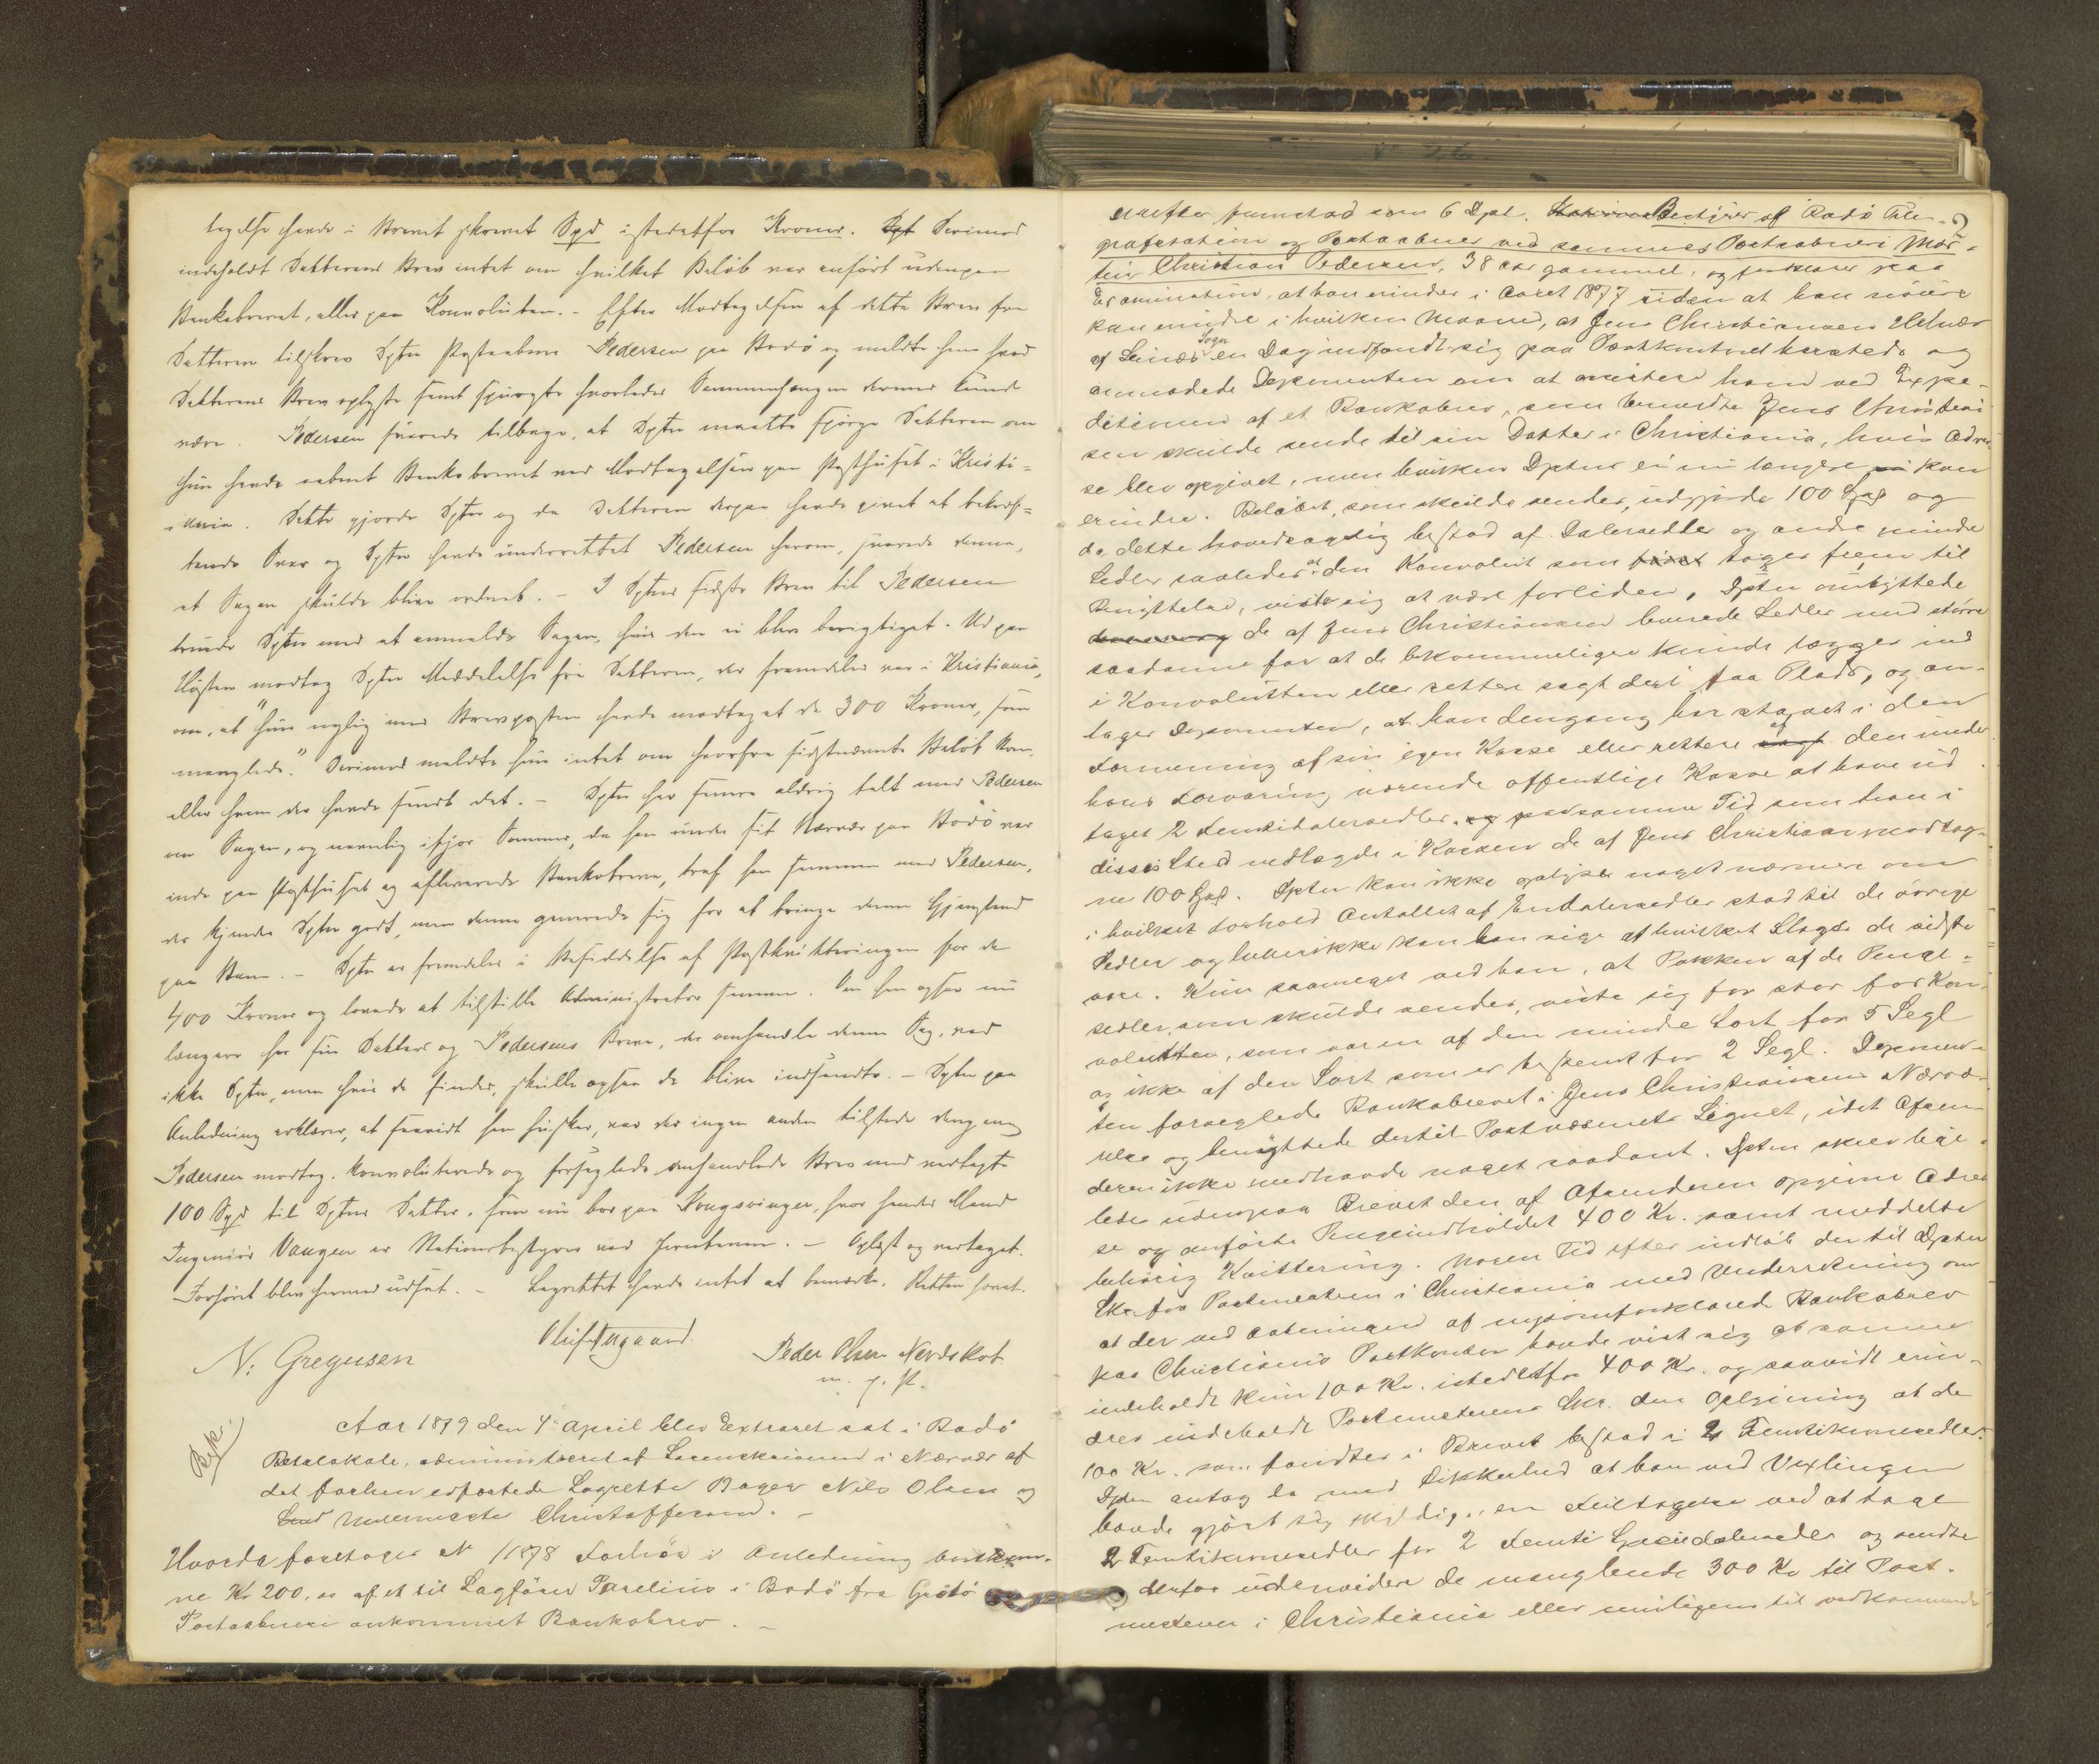 tagelse havde i Brevet skrevet Spd istedetfor Kroner. Derimod
indeholdt Datterens Brev intet om hvilket Beløb var anført udenpaa
Bankobrevet, eller paa Konvolutten. - Efter Modtagelsen af dette Brev fra
Datteren tilskrev Dptn Postaabner Pedersen paa Bodø og meldte ham hvad
Datterens Brev oplyste samt spurgte hvorledes Sammenhængen dermed kunde
være. Pedersen svarede tilbage, at Dptn maatte spørge Datteren om
hun havde aabnet Bankobrevet ved Modtagelsen paa Posthuset i Kristi=
ania. Dette gjorde Dptn og da Datteren derpaa havde givet et bekræf=
tende Svar og Dptn havde underrettet Pedersen herom, svarede denne,
at Sagen skulde blive ordnet. - I Dptns sidste Brev til Pedersen
truede Dptn med at anmelde Sagen, hvis den ei blev berigtiget. Ud paa
Høsten modtog Dptn Meddelelse fra Datteren, der fremdeles var i Kristiania,
om, at "hun nylig med Brevposten havde modtaget de 300 Kroner, som
manglede." Derimod meldte hun intet om hvorfra sidstnævnte Beløb kom
eller hvem der havde sendt det. - Dptn har senere aldrig talt med Pedersen
om Sagen, og navnlig ifjor Sommer, da han under sit Nærvær paa Bodø var
inde paa Posthuset og afleverede Bankobreve, traf han sammen med Pedersen,
der kjendte Dptn godt, men denne generede sig for at bringe denne Gjenstand
paa Bane. - Dptn er fremdeles i Besiddelse af Postkvitteringen for de
400 Kroner og lovede at tilstille Administrator samme. Om han ogsaa nu
længere har sin Datters og Pedersens Breve, der omhandle denne Sag, ved
ikke Dptn, men hvis de findes, skulle ogsaa de blive indsendte. - Dptn paa
Anledning erklærer, at saavidt han husker, var der ingen anden tilstede dengang
Pedersen modtog, konvoluterede og forseglede omhandlede Brev med vedlagte
100 Spd til Dptns Datter, som nu bor paa Kongsvinger, hvor hendes Mand
Ingeniør Vangen er Stationsbestyrer ved Jernbanen. - Oplæst og vedtaget.
Forhøret blev hermed udsat. - Lagrettet havde intet at bemærke. Retten hævet.
N. Gregusen
Peder Olsen Nevdskot
m. p. P.
Aar 1879 den 4de April blev Extraret sat i Bodø
Retslokale, administreret af Sorenskriveren i Nærvær af
det forhen edfæstede Lagrette Bager Nils Olsen og
Underniecte Christoffersen. -
Hvorda foretoges No /1878 Forhør i Anledning bortkom-
ne Kr 200.00 af et til Sagfører Parelius i Bodø fra Grøtø
Postaabneri ankommet Bankobrev. -
derefter fremstod som 6 Dpt. Bestyrer af Bodø Tele-
grafstation og Postaabner ved sammes Postaabneri Mor-
tin Christian Pedersen, 38 aar gammel, og forklarer paa
Examination, at han erinder i Aaret 1877 uden at han nøiere
kan erindre i hvilken Maaned, at Jens Christiansen
af Leines Sogn en Dag indfandt sig paa Postkontoret hersteds og
anmodede Deponenten om at assistere ham ved Expe-
ditionen af et Bankobrev, som bemeldte Jens Christian-
sen skulde sende til sin Datter i Christiania, hvis Adres-
se blev opgivet, men hvilken Dptn ei nu længere kan
erindre. Beløbet, som skulde sendes, udgjorde 100 Spd og
da dette hovedsagelig bestod af Dalersedler og andre mindre
Sedler saaledes at den Konvolut som toges frem til
Benyttelse, viste sig at være forliden, Dptn ombyttede
de af Jens Christiansen leverede Sedler med større
saadanne for at de bekvemmeligere kunde lægges ind
i Konvolutten eller rettere sagt deri faa Plads, og an-
tager Deponenten, at han dengang har staaet i den
Formening af sin egen Kasse eller rettere af den under
hans Forvaring værende offentlige Kasse at have ud-
taget 2 Femtidalersedler, paa samme Tid som han i
disses Sted nedlagde i Kassen de af Jens Christiansen modtag-
ne 100 Spd. Dptn kan ikke oplyse noget nærmere om
i hvilket Forhold Antallet af Endalersedler stod til de øvrige
Sedler og heller ikke kan han sige af hvilket Slags de sidste
vare. Kun saameget ved han, at Pakken af de Penge=
sedler, som skulde sendes, viste sig for stor for Kon-
volutten, som var en af den mindre Sort for 5 Segl
og ikke af den Sort som er bestemt for 2 Segl. Deponen-
ten forseglede Bankobrevet i Jens Christiansens Nærvæ-
relse og benyttede dertil Postvæsenets Signet, idet Afsen-
deren ikke medhavde noget saadant. Dptn skrev lige-
ledes udenpaa Brevet den af Afsenderen opgivne Adres-
se og anførte Pengeindholdet 400 Kr. samt meddelte
behørig Kvittering. Nogen Tid efter indløb der til Dptn
Skr. fra Postmesteren i Christiania med Underretning om
at der ved Aabningen af nysomforklarede Bankobrev
paa Christiania Postkontor havde vist sig at samme
indeholdt kun 100 Kr. istedetfor 400 Kr. og saavidt erin-
dres indeholdt Postmesterens Skr. den Oplysning at de
100 Kr. som fandtes i Brevet bestod i 2 Femtikronesedler.
Dptn antog da med Sikkerhed at han ved Vexlingen
havde gjort sig skyldig i en Feiltagelse ved at tage
2 Femtikronesedler for 2 Femti Speciedalersedler og sendte
derfor uden videre de manglende 300 Kr til Post-
mesteren i Christiania eller muligens til vedkommende